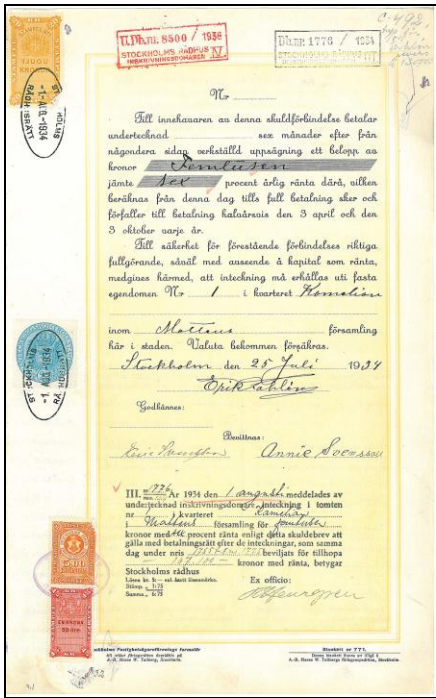 U.Db.nr. 8500 / 1936
STOCKHOLMS RÅDHUS
INSKRIVNINGSDOMAREN IV
Db.nr. 1776 / 1934
STOCKHOLMS RÅDHUS
C-492
Nr
Till innehavaren av denna skuldförbindelse betalar
undertecknad sex månader efter från
någondera sidan verkställd uppsägning ett belopp av
kronor Femtusen
jämte sex procent årlig ränta därå, vilken
beräknas från denna dag tills full betalning sker och
förfaller till betalning halvårsvis den 3 april och den
3 oktober varje år.
Till säkerhet för förestående förbindelses riktiga
fullgörande, såväl med avseende å kapital som ränta,
medgives härmed, att inteckning må erhållas uti fasta
egendomen Nr 1 i kvarteret Kamelian
inom Matteus församling
här i staden. Valuta bekommen försäkras.
Stockholm den 25 Juli 1934
Erik Sahlin
Godkännes:
Bevittnas:
Annie
III. nr 1776 År 1934 den 1 augusti meddelades av
undertecknad inskrivningsdomare, inteckning i tomten
nr 1 kvarteret Kamelian
i Matteus församling för femtusen
kronor med sex procent ränta enligt detta skuldebrev att
gälla med betalningsrätt efter de inteckningar, som samma
dag under nris beviljats för tillhopa
kronor med ränta, betygar
Stockholms rådhus
Ex officio:
Lösen kr.
Stämp.
Summa
STOCKHOLMS
RÅDHUSRÄTT
-1. AUG. 1934
STOCKHOLMS
RÅDHUSRÄTT
-1. AUG. 1934
5:00
Stockholms Fastighetsägareförenings formulär
A.-B. Hasse W. Tullberg, Stockholm.
Blankett nr 771.